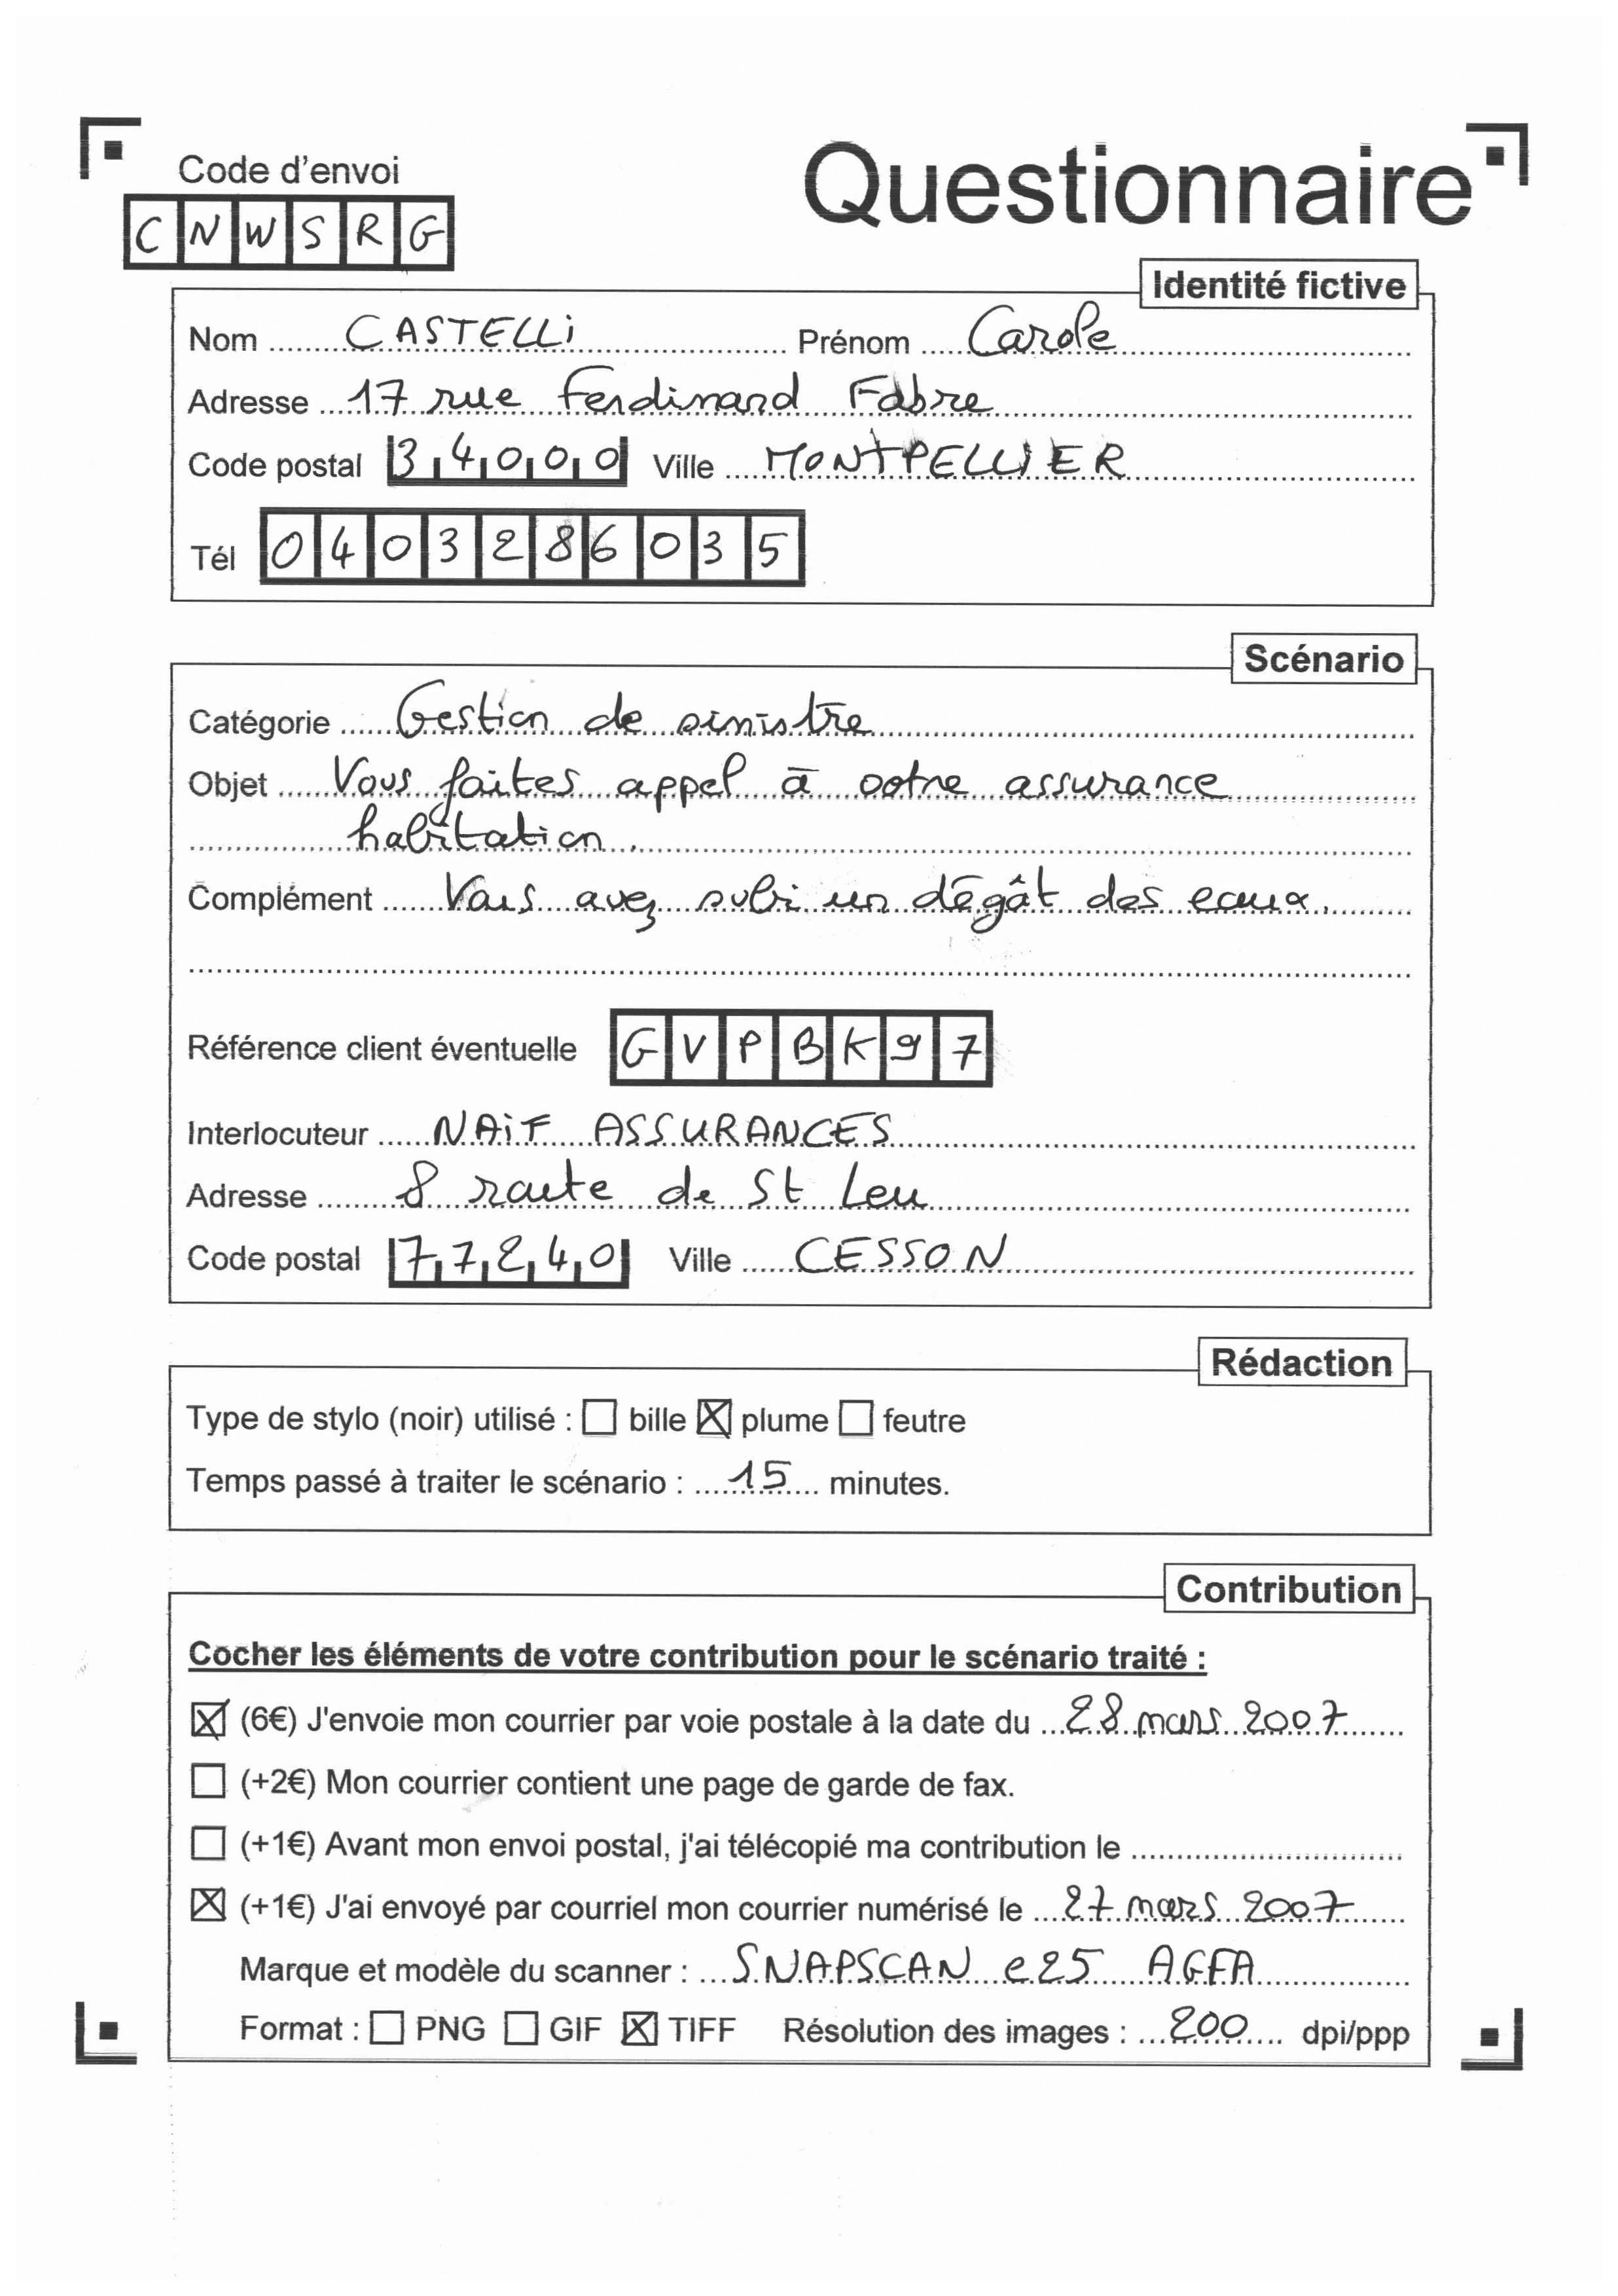 Code d'envoi
CNWSRG
Questionnaire
Identité fictive
Nom CASTELLi Prénom Carole
Adresse 17 rue Ferdinand Fabre
Code postal 34000 Ville MONTPELLIER
Tél 0403286035
Scénario
Catégorie Gestion de sinistre
Objet Vous faites appel à votre assurance
habitation.
Complément Vous avez subi un dégât des eaux.
Référence client éventuelle GVPBK97
Interlocuteur NAiF ASSURANCES
Adresse 8 route de St Leu
Code postal 77240 Ville CESSON
Rédaction
Type de stylo (noir) utilisé : ☐ bille ☒ plume ☐ feutre
Temps passé à traiter le scénario : 15 minutes.
Contribution
Cocher les éléments de votre contribution pour le scénario traité :
☒ (6€) J'envoie mon courrier par voie postale à la date du 28 mars 2007
☐ (+2€) Mon courrier contient une page de garde de fax.
☐ (+1€) Avant mon envoi postal, j'ai télécopié ma contribution le
☒ (+1€) J'ai envoyé par courriel mon courrier numérisé le 27 mars 2007
Marque et modèle du scanner : SNAPSCAN e25 AGFA
Format : ☐ PNG ☐ GIF ☒ TIFF Résolution des images : 200 dpi/ppp